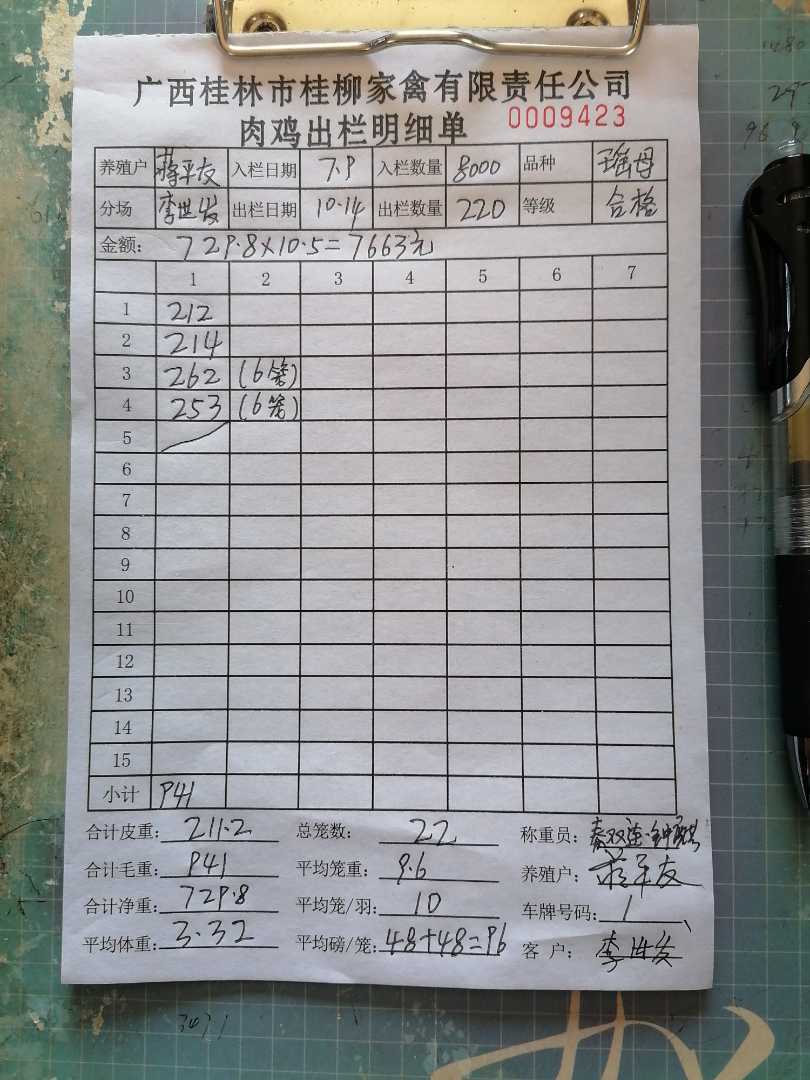 广西桂林市桂柳家禽有限责任公司
肉鸡出栏明细单 0009423
养殖户 蒋平友 入栏日期 7.9 入栏数量 8000 品种 瑶母
分场 李世发 出栏日期 10.14 出栏数量 220 等级 合格
金额: 729.8×10.5=7663元
1 2 3 4 5 6 7
1 212
2 214
3 262 (6笼)
4 253 (6笼)
5
6
7
8
9
10
11
12
13
14
15
小计 941
合计皮重: 211.2 总笼数: 22 称重员: 秦双连
合计毛重: 941 平均笼重: 9.6 养殖户: 蒋平友
合计净重: 729.8 平均笼/羽: 10 车牌号码: 1
平均体重: 3.32 平均磅/笼: 48+48=96 客户: 李世发